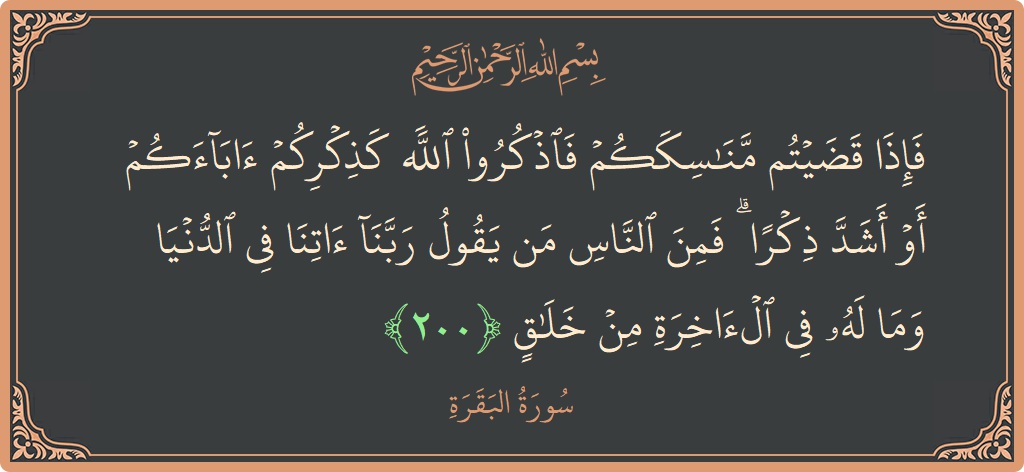 بِسْمِ اللهِ الرَّحْمٰنِ الرَّحِيْمِ
فَإِذَا قَضَيۡتُم مَّنَٰسِكَكُمۡ فَٱذۡكُرُواْ ٱللَّهَ كَذِكۡرِكُمۡ ءَابَآءَكُمۡ
أَوۡ أَشَدَّ ذِكۡرٗاۗ فَمِنَ ٱلنَّاسِ مَن يَقُولُ رَبَّنَآ ءَاتِنَا فِي ٱلدُّنۡيَا
وَمَا لَهُۥ فِي ٱلۡءَاخِرَةِ مِنۡ خَلَٰقٖ ﴿٢٠٠﴾
سُورَةُ البَقَرَةِ